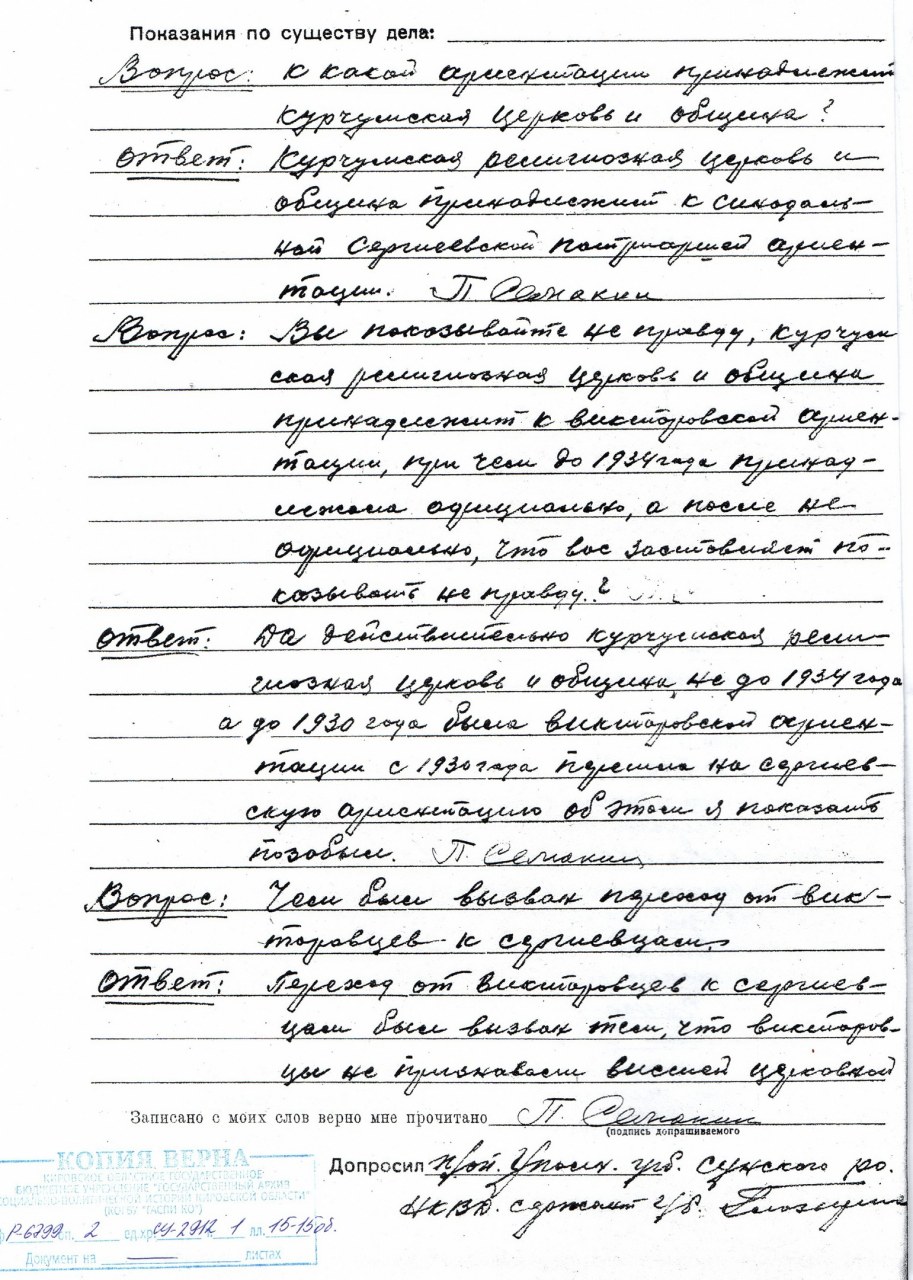 Показания по существу дела:
Вопрос: К какой ориентации принадлежит
Курчумская церковь и община?
Ответ: Курчумская религиозная церковь и
община принадлежит к синодаль-
ной Сергиевской патриаршей ориен-
тации. П Семакин
Вопрос: Вы показывайте не правду, Курчум
ская религиозная церковь и община
принадлежит к викторовской ориен-
тации, при чем до 1934 года принад-
лежала официально, а после не
официально, что вас заставляет по-
казывать не правду.?
Ответ: Да действительно Курчумская рели-
гиозная церковь и община не до 1934 года
а до 1930 года была викторовской ориен-
тации с 1930 года перешла на сергиев-
скую ориентацию об этом я показать
позабыл. П. Семакин
Вопрос: Чем был вызван переход от вик-
торовцев к сергиевцам.
Ответ: Переход от викторовцев к сергиев-
цам был вызван тем, что викторов-
цы не признавали высшей церковной
Записано с моих слов верно мне прочитано П. Семакин
(подпись допрашиваемого
Допросил угб. Сунского ро.
НКВД. сержант г/б.
КОПИЯ ВЕРНА
КИРОВСКОЕ ОБЛАСТНОЕ ГОСУДАРСТВЕННОЕ
БЮДЖЕТНОЕ УЧРЕЖДЕНИЕ "ГОСУДАРСТВЕННЫЙ АРХИВ
СОЦИАЛЬНО-ПОЛИТИЧЕСКОЙ ИСТОРИИ КИРОВСКОЙ ОБЛАСТИ"
(КОГБУ "ГАСПИ КО")
Р-6799 оп. 2 ед.хр. СУ-2912 1 лл. 15-15об.
Документ на листах